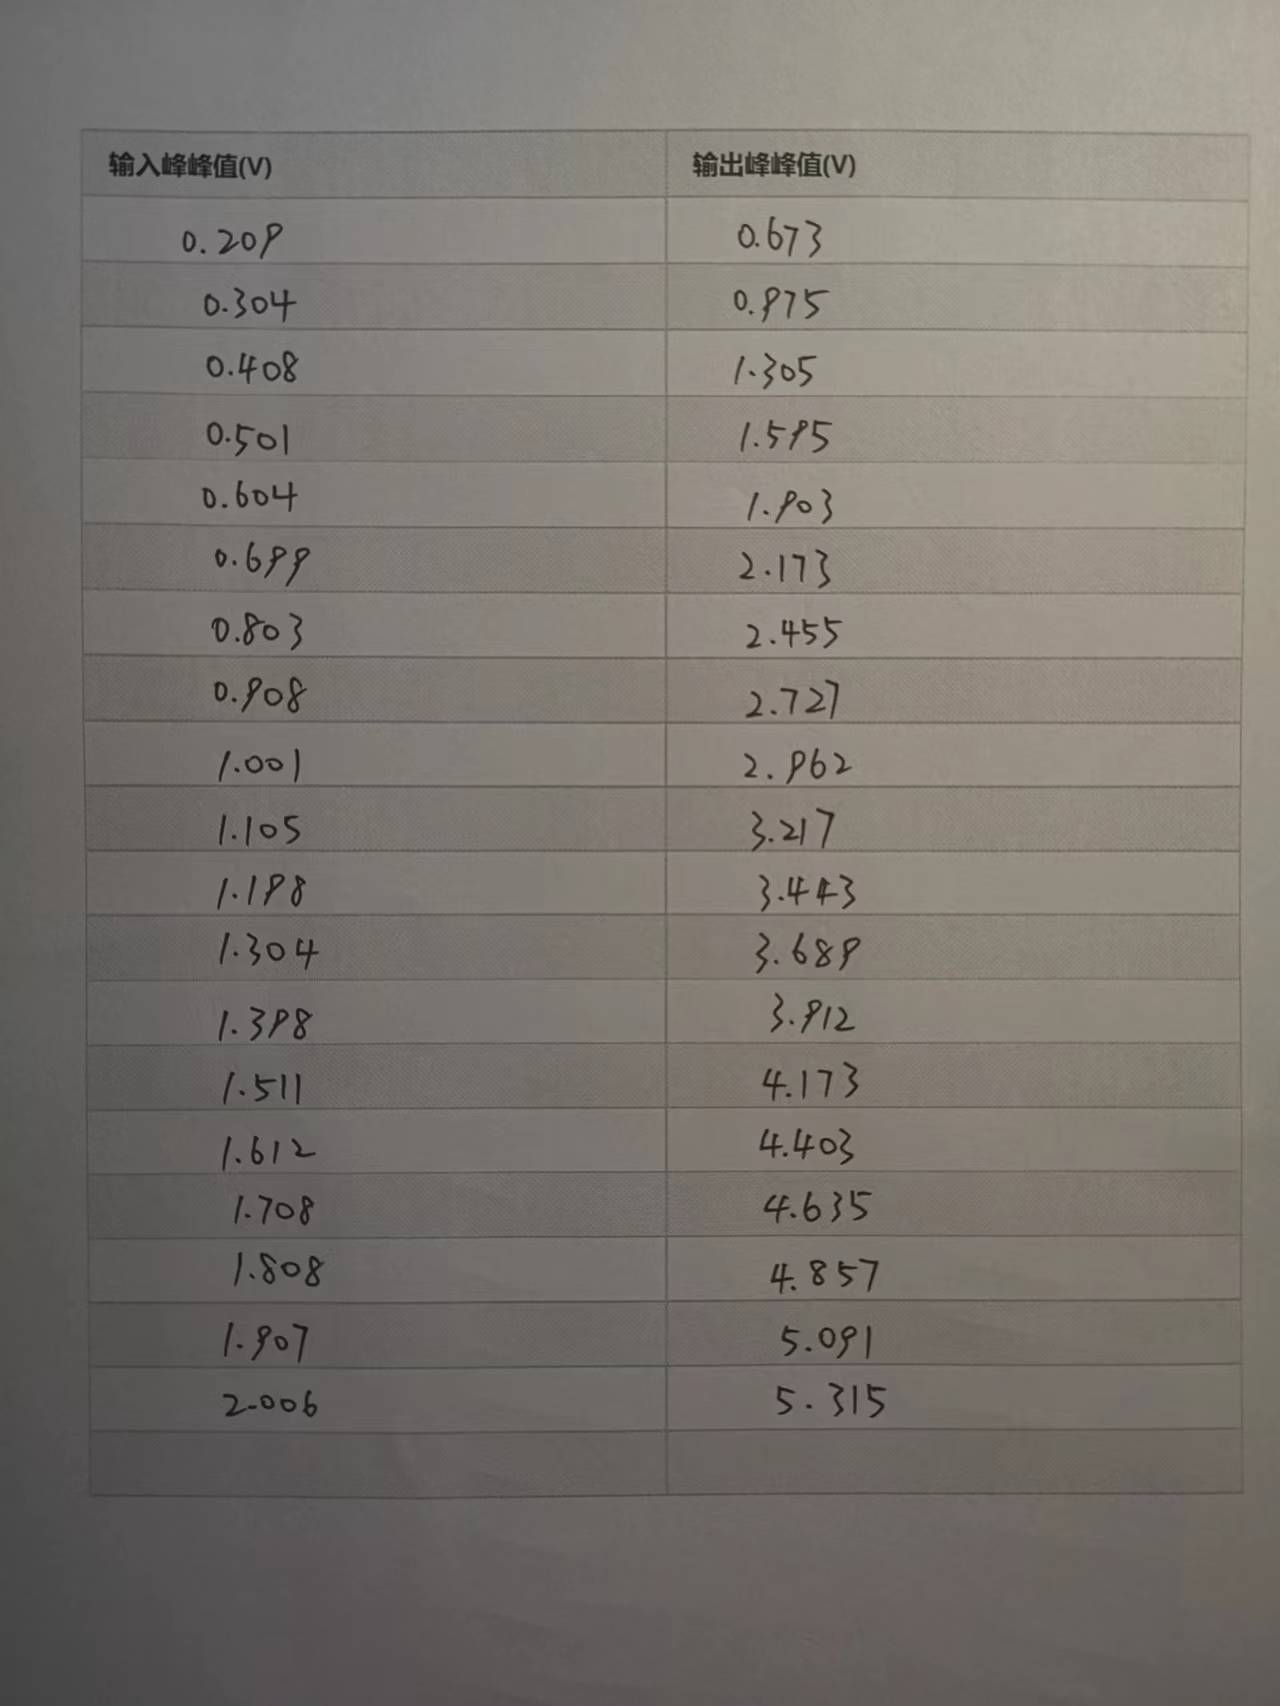 输入峰峰值(V) 输出峰峰值(V)
0.209 0.673
0.304 0.975
0.408 1.305
0.501 1.595
0.604 1.903
0.699 2.173
0.803 2.455
0.908 2.727
1.001 2.962
1.105 3.217
1.198 3.443
1.304 3.689
1.398 3.912
1.511 4.173
1.612 4.403
1.708 4.635
1.808 4.857
1.907 5.091
2.006 5.315